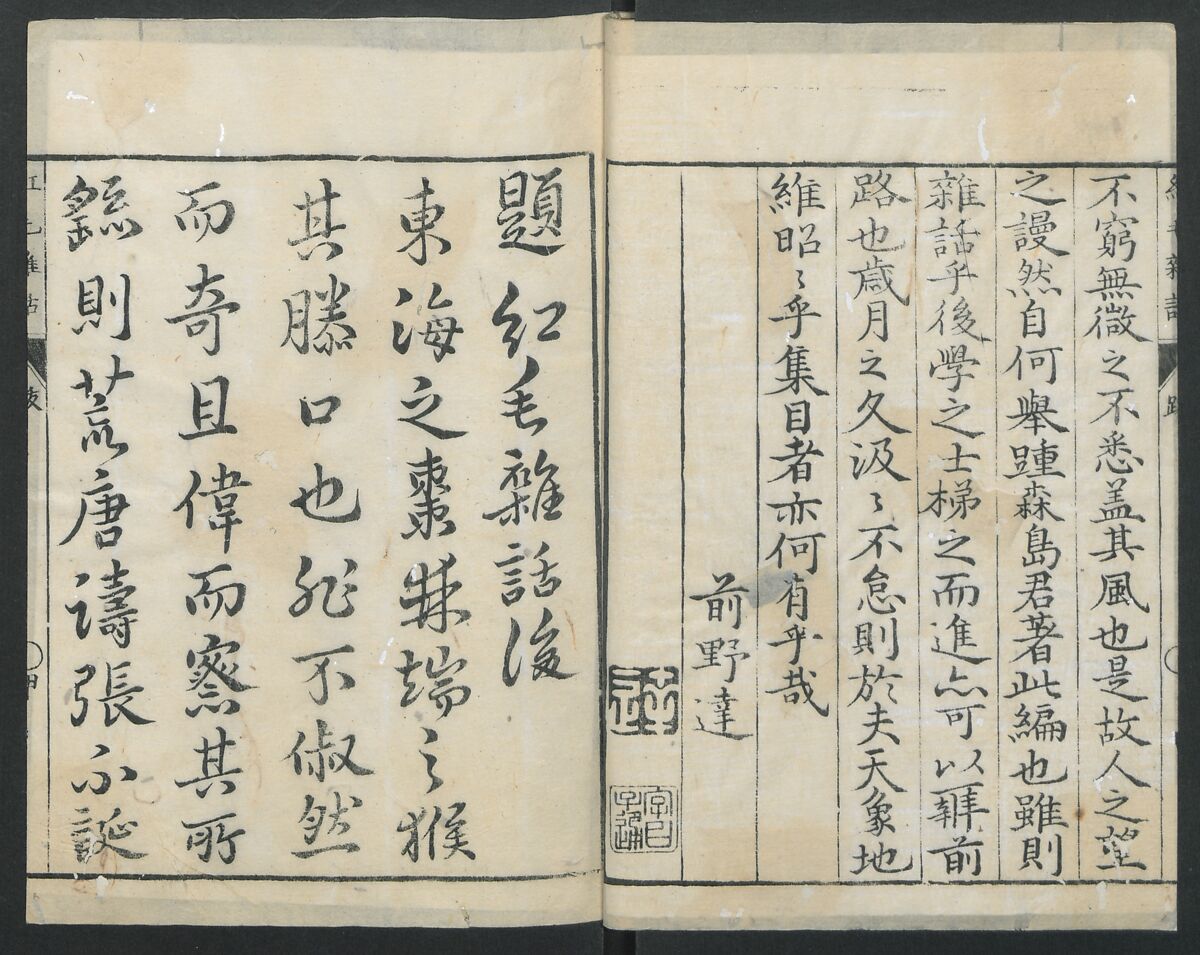 不窮無微之不悉盖其風也是故人之望
之謾然自何擧踵森島君著此編也雖則
雜話乎後學之士梯之而進亦可以辨前
路也歳月之久汲〻不怠則於夫天象地
維昭〻乎集目者亦何有乎哉
前野達
題紅毛雜話後
東海之棗棘端之猴
其勝口也非不俶然
而奇且偉而察其所
繇則荒唐譸張不誕